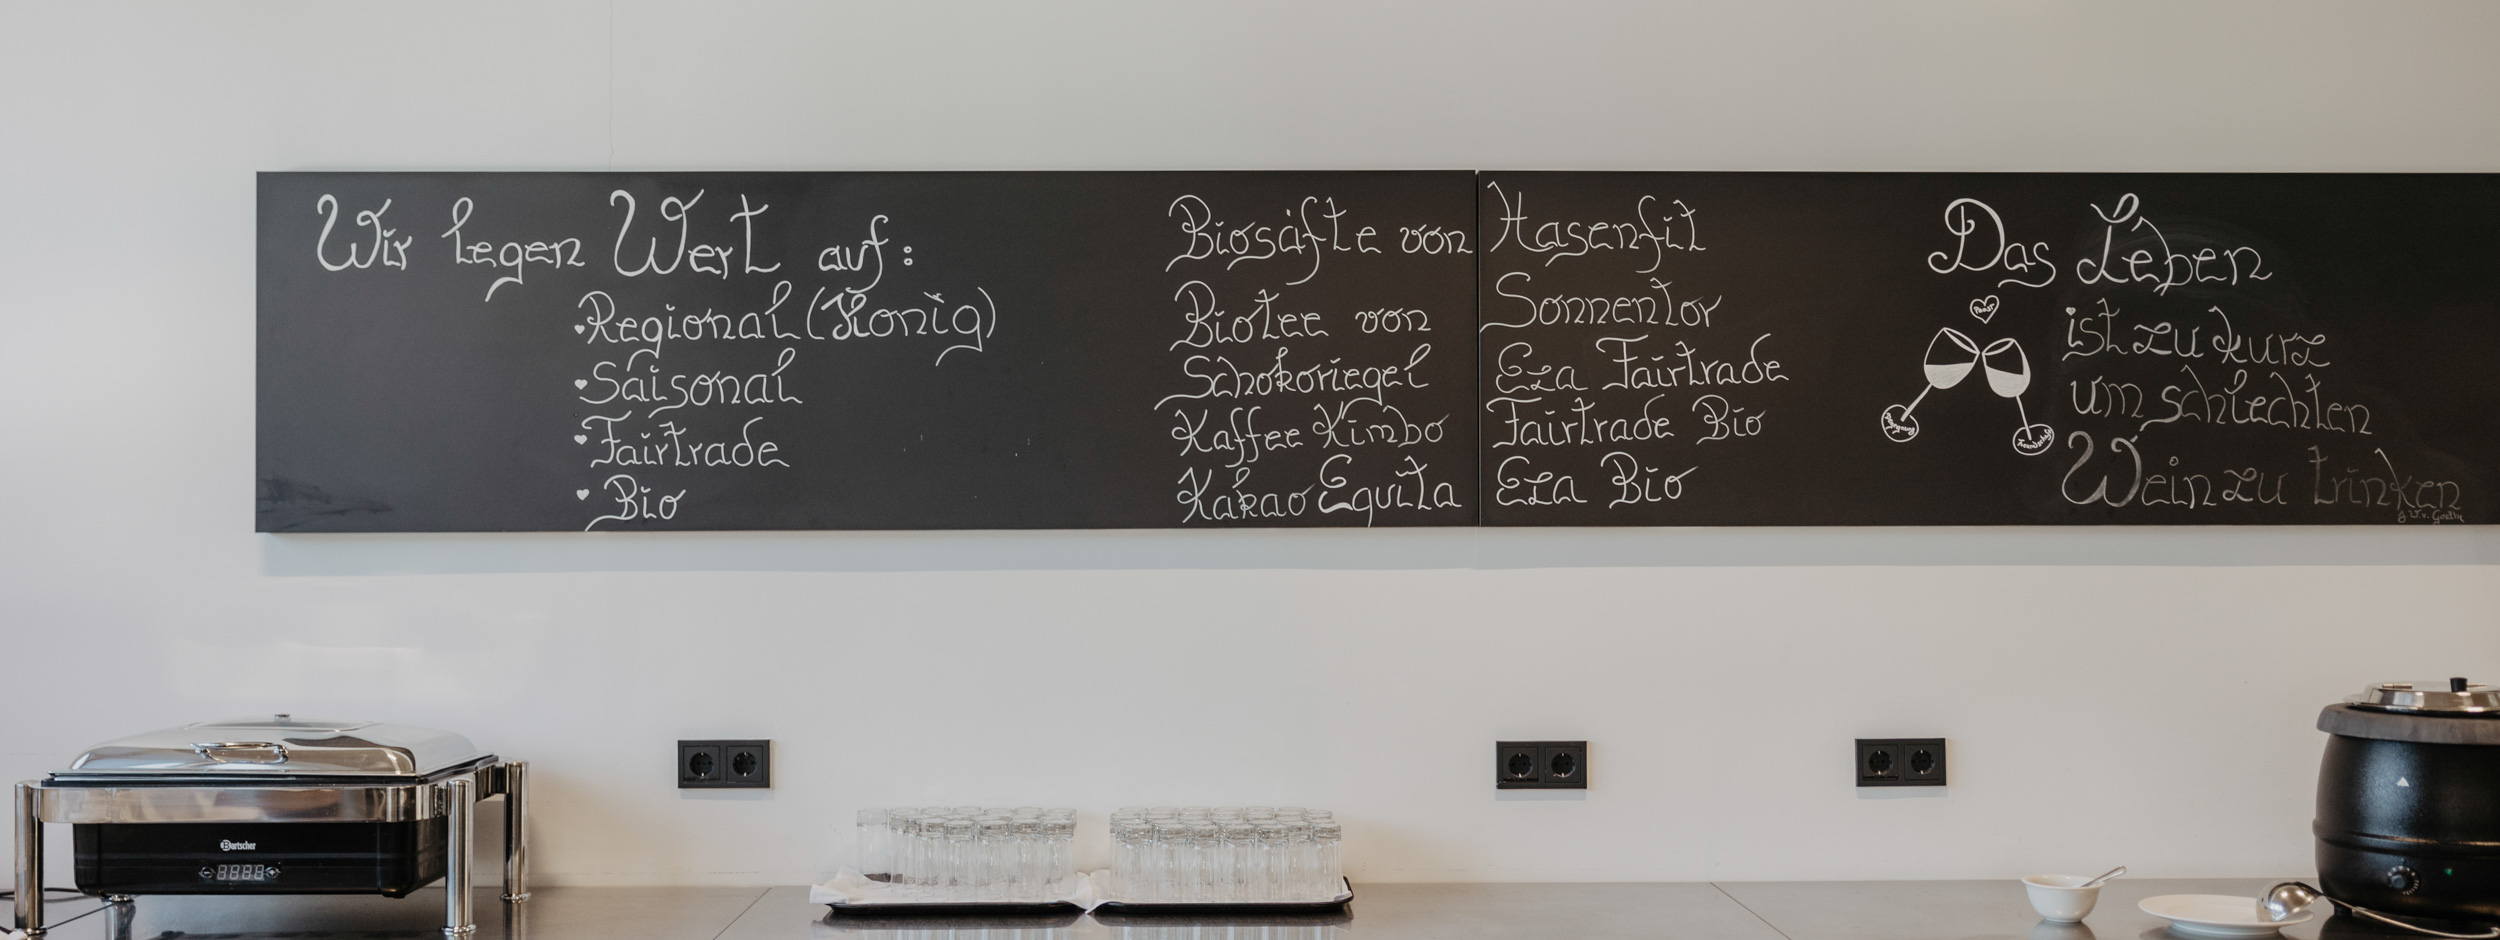 Wir legen Wert auf:
Regional (Honig)
Saisonal
Fairtrade
Bio
Biosäfte von Hasenfit
Biotee von Sonnentor
Schokoriegel Eza Fairtrade
Kaffee Kimbo Fairtrade Bio
Kakao Equita Eza Bio
Das Leben
ist zu kurz
um schlechten
Wein zu trinken
J.W.v. Goethe
Freundschaft
Bartscher
8888